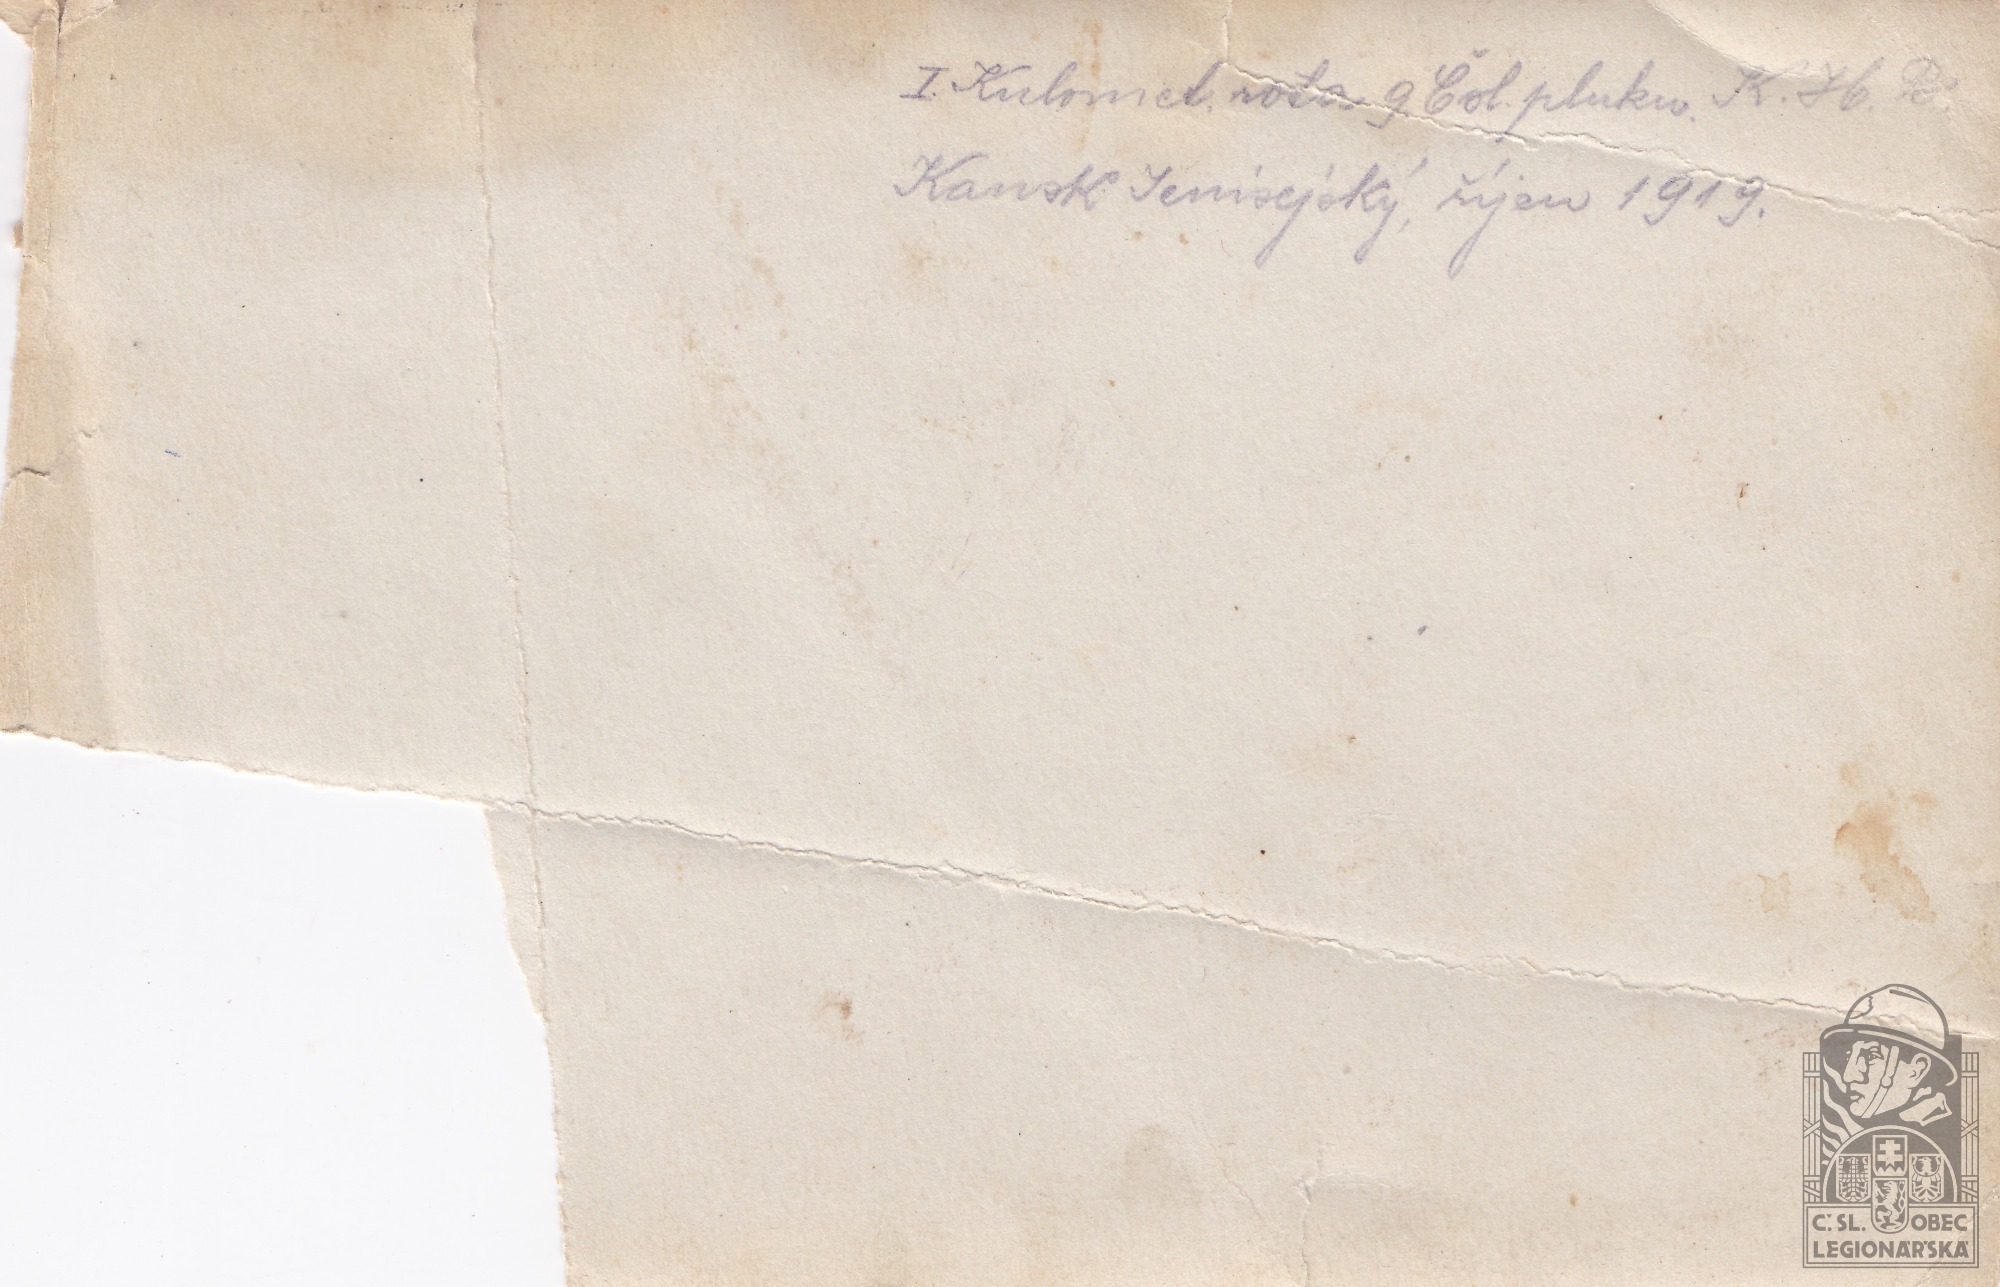 I. Kulomet. rota 9 Čsl. pluku. K. H. B.
Kansk Jenisejský, říjen 1919.
Č. SL. OBEC
LEGIONÁŘSKÁ